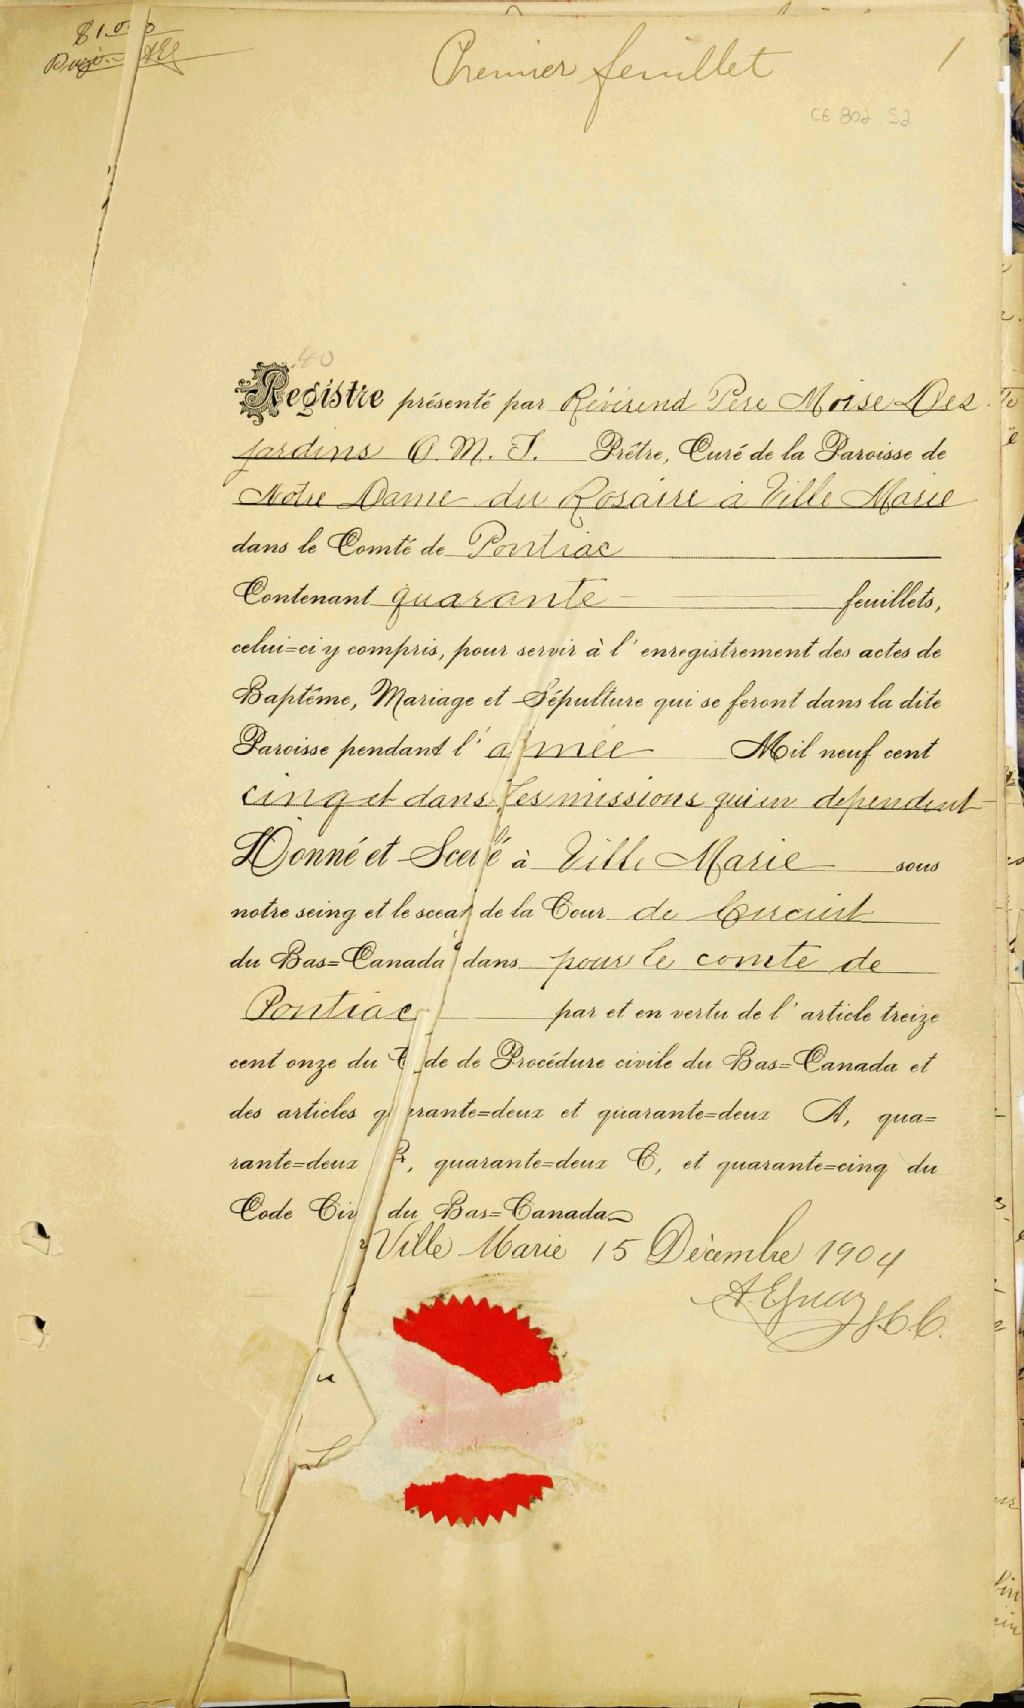 Premier feuillet
1
CE 802 S2
40
Registre présenté par Révérend Père Moise Des
jardins O. M. I. Prêtre, Curé de la Paroisse de
Notre Dame du Rosaire à Ville Marie
dans le Comté de Pontiac
Contenant quarante feuillets,
celui=ci y compris, pour servir à l'enregistrement des actes de
Baptême, Mariage et Sépulture qui se feront dans la dite
Paroisse pendant l'année Mil neuf cent
cinq et dans les missions qui en dependent
Donné et Scellé à Ville Marie sous
notre seing et le sceau de la Cour de Circuit
du Bas=Canada dans pour le comté de
Pontiac par et en vertu de l'article treize
cent onze du Code de Procédure civile du Bas=Canada et
des articles quarante=deux et quarante=deux A, qua=
rante=deux B, quarante=deux C, et quarante=cinq du
Code Civil du Bas=Canada
Ville Marie 15 Décembre 1904